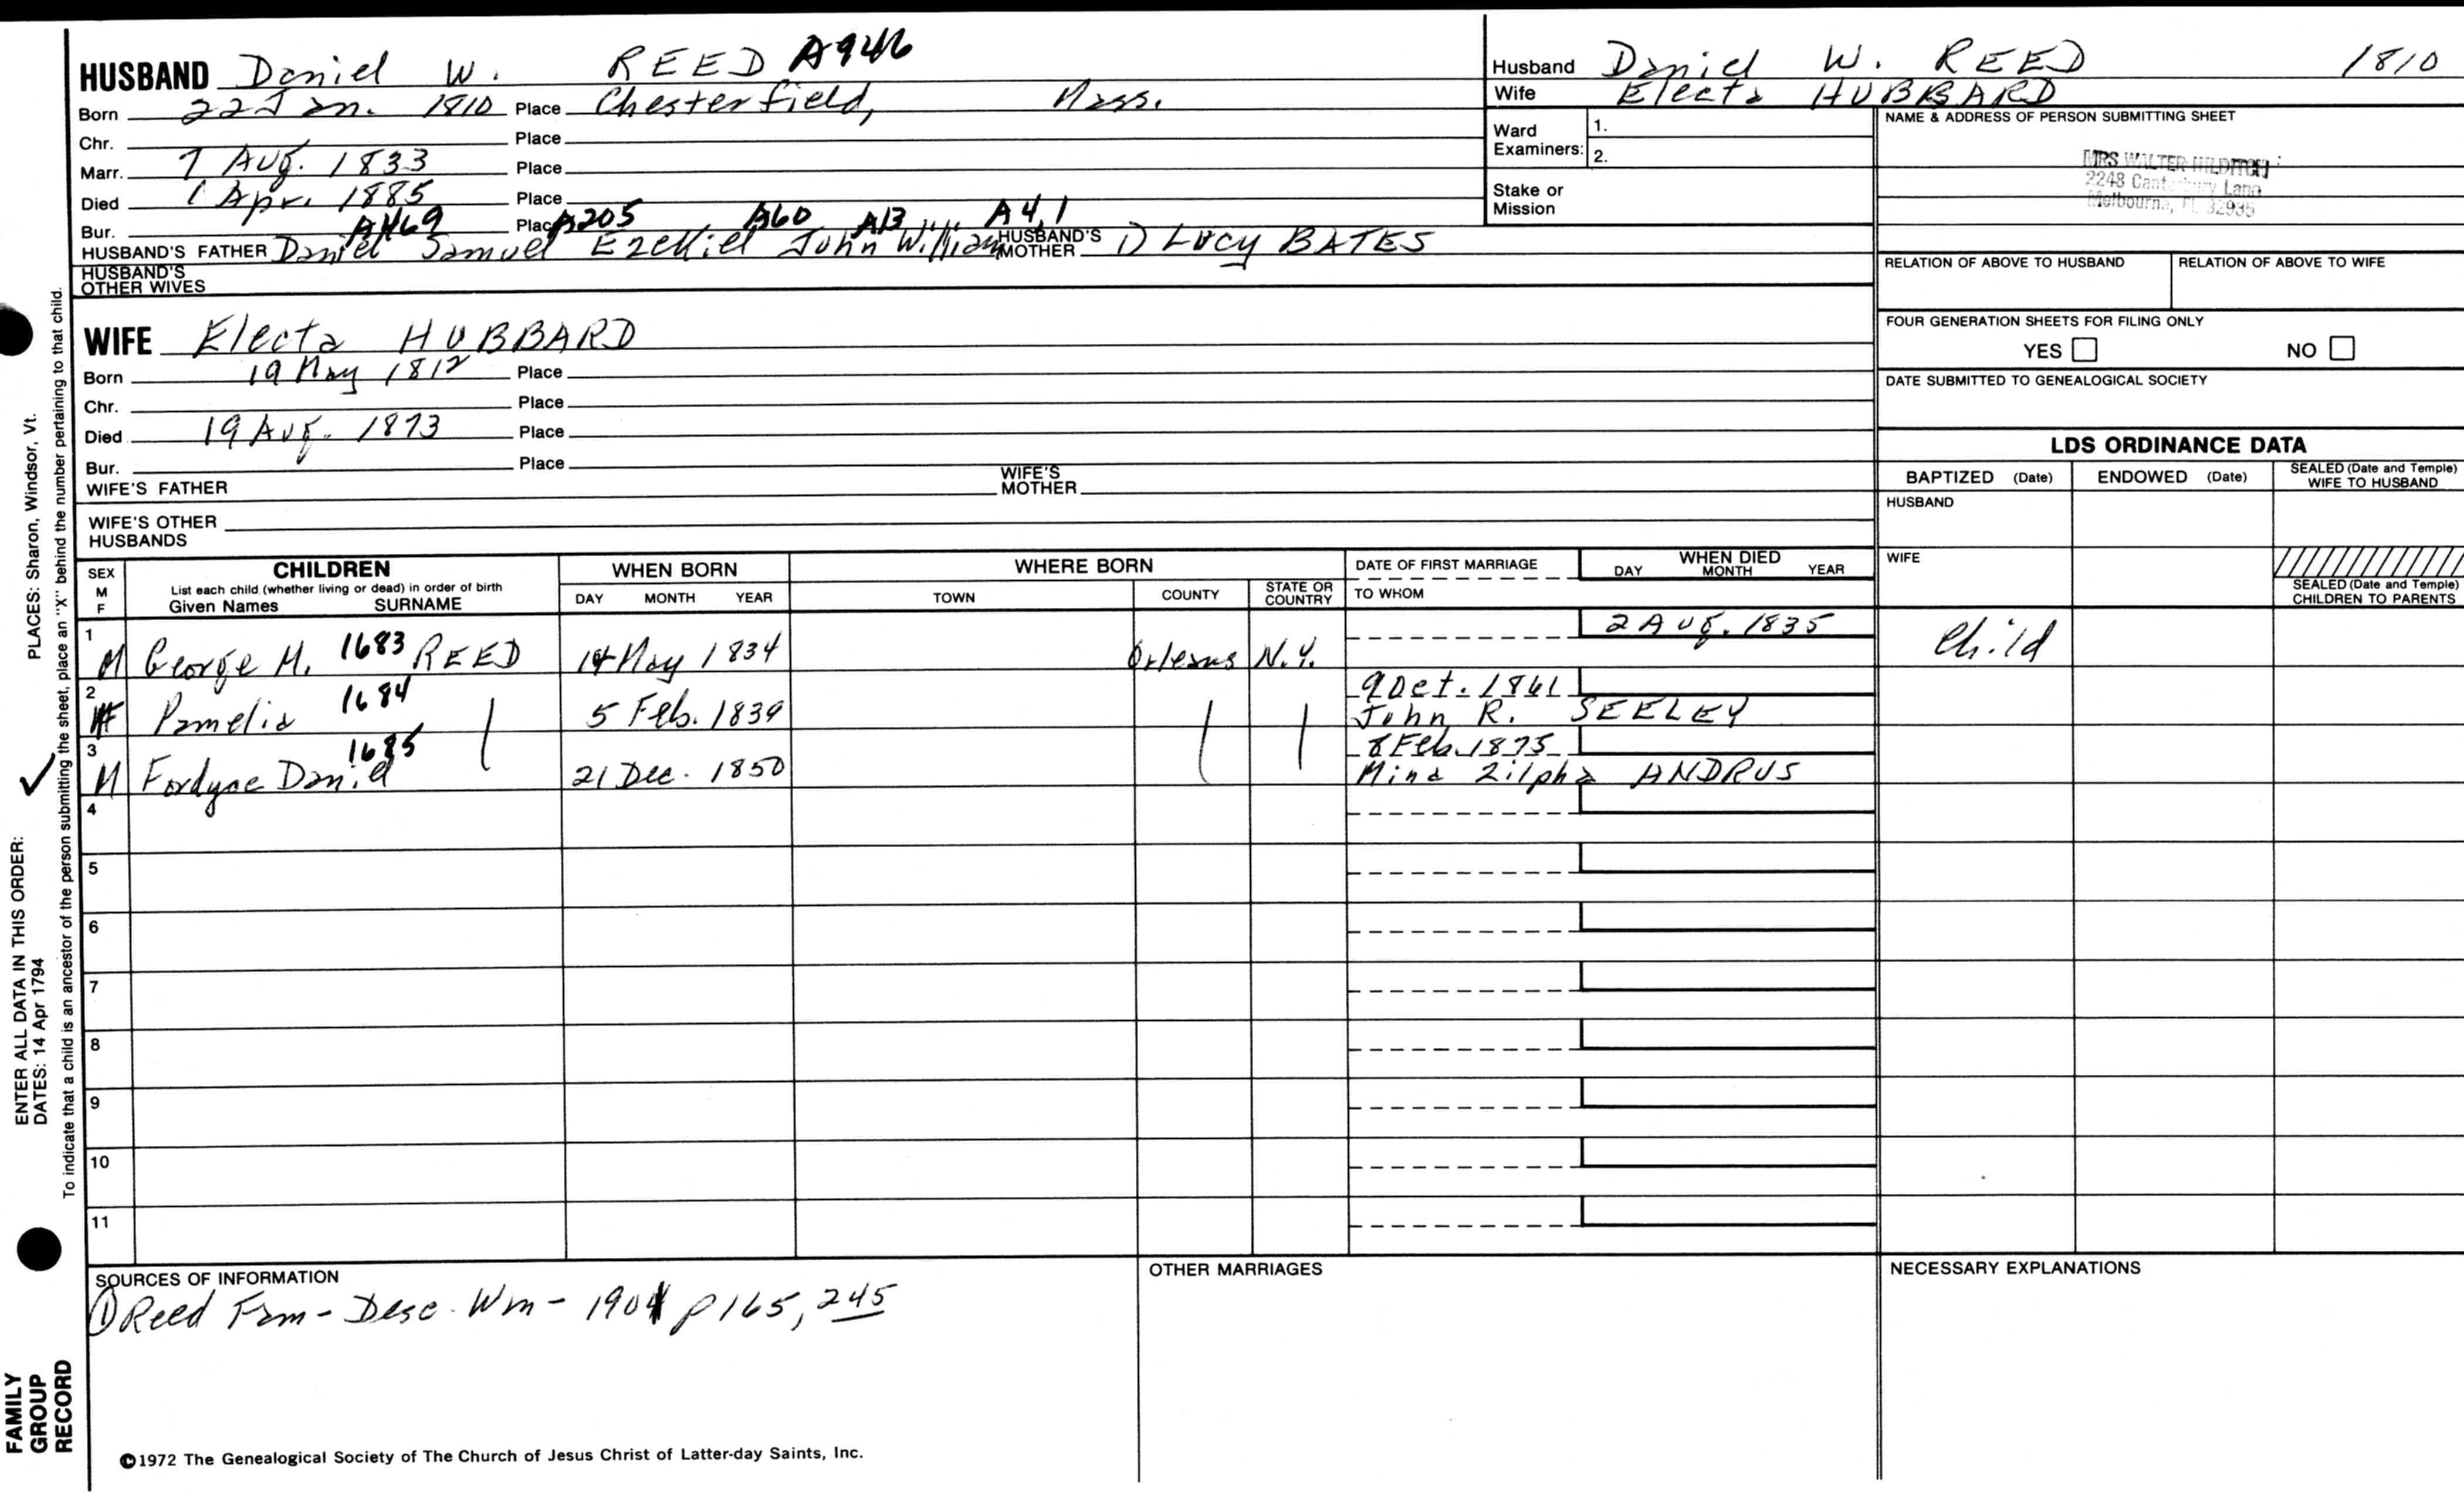 HUSBAND Daniel W. REED A946
Born 22 Jan. 1810 Place Chesterfield, Mass.
Chr. Place
Marr. 7 Aug. 1833 Place
Died 1 Apr. 1885 Place
Bur. Place
A469 A205 A60 A13 A4,1
HUSBAND'S FATHER Daniel Samuel Ezekiel John William HUSBAND'S MOTHER 1) Lucy BATES
HUSBAND'S
OTHER WIVES
WIFE Electa HUBBARD
Born 19 May 1812 Place
Chr. Place
Died 19 Aug. 1873 Place
Bur. Place
WIFE'S FATHER WIFE'S MOTHER
WIFE'S OTHER
HUSBANDS
Husband Daniel W. REED 1810
Wife Electa HUBBARD
Ward
Examiners: 1.
2.
Stake or
Mission
NAME & ADDRESS OF PERSON SUBMITTING SHEET
MRS WALTER HILDITCH
2248 Canterbury Lane
Melbourne, FL 32935
RELATION OF ABOVE TO HUSBAND RELATION OF ABOVE TO WIFE
FOUR GENERATION SHEETS FOR FILING ONLY
YES NO
DATE SUBMITTED TO GENEALOGICAL SOCIETY
LDS ORDINANCE DATA
BAPTIZED (Date) ENDOWED (Date) SEALED (Date and Temple)
WIFE TO HUSBAND
HUSBAND
WIFE
SEALED (Date and Temple)
CHILDREN TO PARENTS
SEX
M
F
CHILDREN
List each child (whether living or dead) in order of birth
Given Names SURNAME
WHEN BORN
DAY MONTH YEAR
WHERE BORN
TOWN COUNTY STATE OR
COUNTRY
DATE OF FIRST MARRIAGE
TO WHOM
WHEN DIED
DAY MONTH YEAR
2 Aug. 1835
1 M George M. 1683 REED 14 May 1834 Orleans N.Y. Child
9 Oct. 1861
2 F Pamelia 1684 5 Feb. 1839 John R. SEELEY
8 Feb. 1875
3 M Fordyce Daniel 1685 21 Dec. 1850 Mina Zilpha ANDRUS
4
5
6
7
8
9
10
11
SOURCES OF INFORMATION
① Reed Fam - Desc. Wm - 1901 p 165, 245
OTHER MARRIAGES
NECESSARY EXPLANATIONS
©1972 The Genealogical Society of The Church of Jesus Christ of Latter-day Saints, Inc.
ENTER ALL DATA IN THIS ORDER:
DATES: 14 Apr 1794 PLACES: Sharon, Windsor, Vt.
To indicate that a child is an ancestor of the person submitting the sheet, place an "X" behind the number pertaining to that child.
FAMILY
GROUP
RECORD